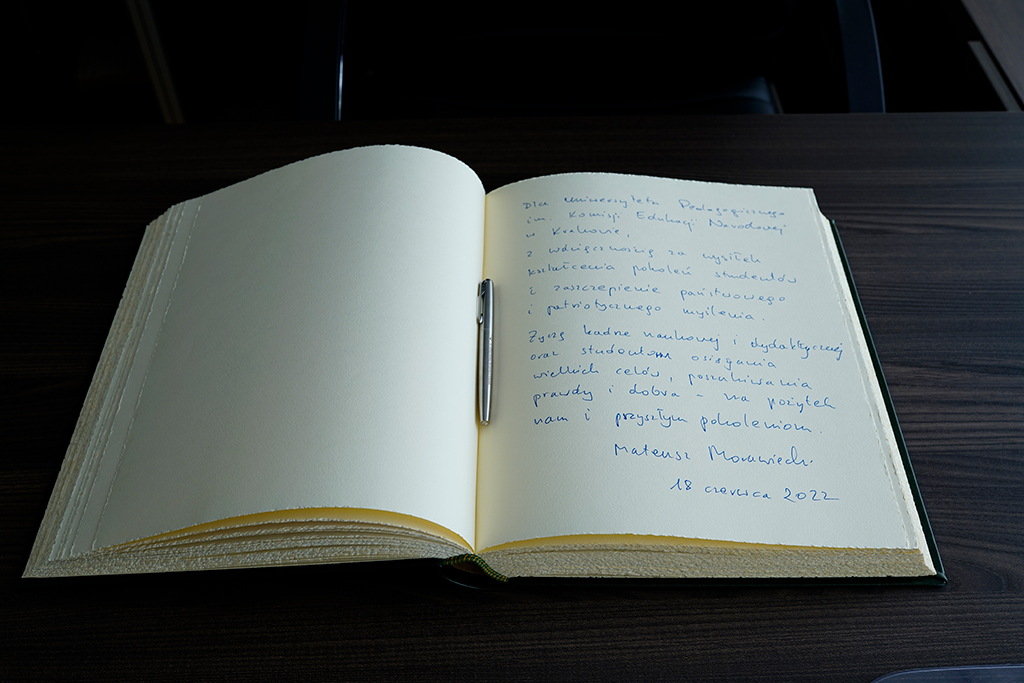 Dla Uniwersytetu Pedagogicznego
im. Komisji Edukacji Narodowej
w Krakowie,
z wdzięcznością za wysiłek
kształcenia pokoleń studentów
i zaszczepienie państwowego
i patriotycznego myślenia.
Życzę kadrze naukowej i dydaktycznej
oraz studentom osiągania
wielkich celów, poszukiwania
prawdy i dobra – na pożytek
nam i przyszłym pokoleniom.
Mateusz Morawiecki
18 czerwca 2022